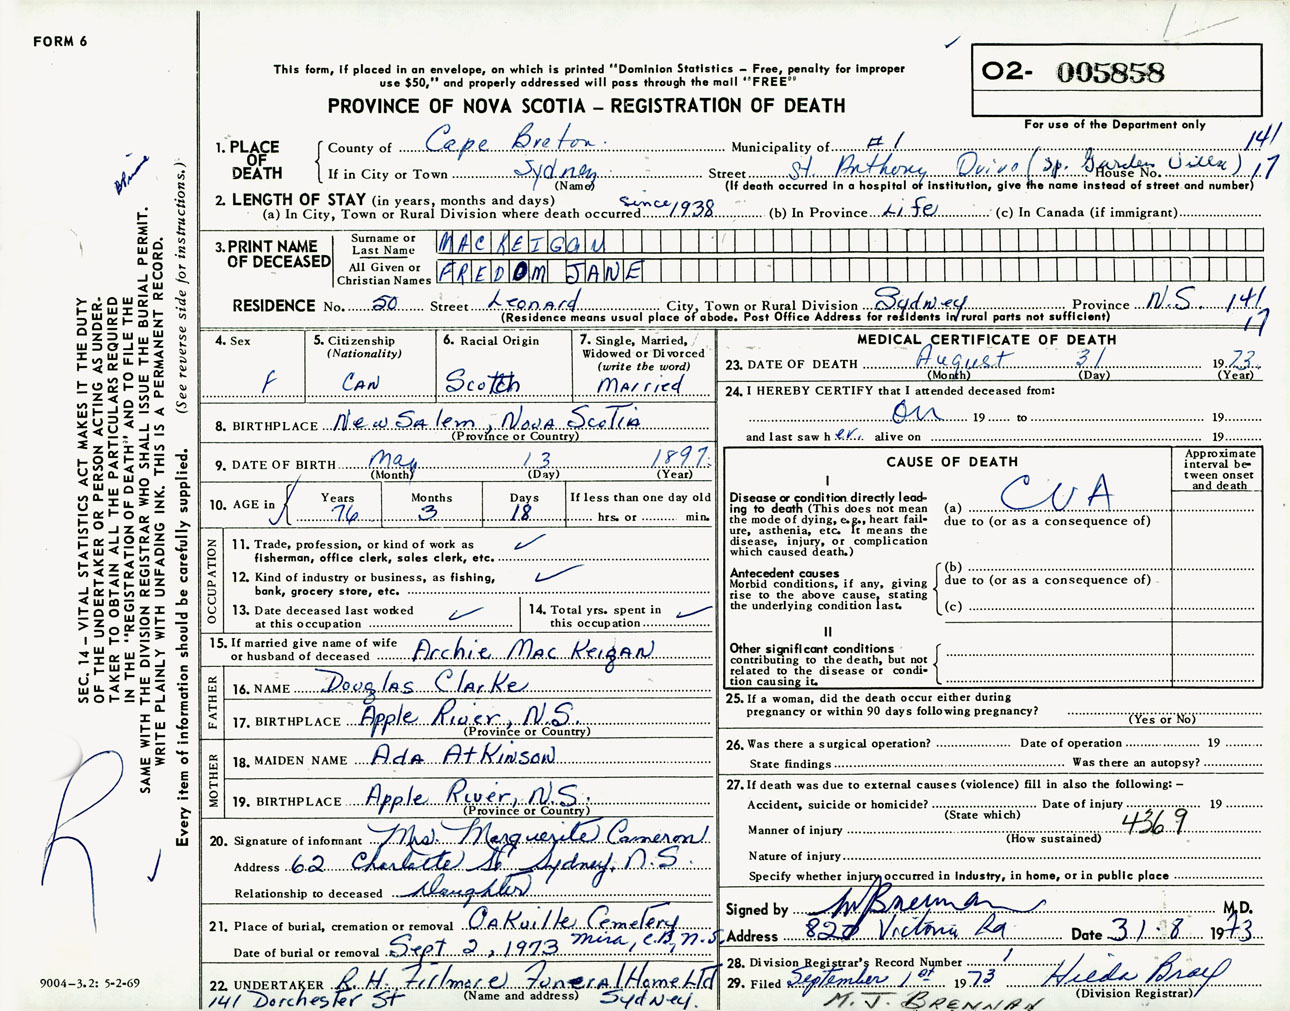 FORM 6
This form, if placed in an envelope, on which is printed "Dominion Statistics – Free, penalty for improper
use $50," and properly addressed will pass through the mail "FREE"
PROVINCE OF NOVA SCOTIA – REGISTRATION OF DEATH
02- 005858
For use of the Department only
SEC. 14 – VITAL STATISTICS ACT MAKES IT THE DUTY
OF THE UNDERTAKER OR PERSON ACTING AS UNDER-
TAKER TO OBTAIN ALL THE PARTICULARS REQUIRED
IN THE "REGISTRATION OF DEATH" AND TO FILE THE
SAME WITH THE DIVISION REGISTRAR WHO SHALL ISSUE THE BURIAL PERMIT.
WRITE PLAINLY WITH UNFADING INK. THIS IS A PERMANENT RECORD.
Every item of information should be carefully supplied. (See reverse side for instructions.)
R
9004-3.2: 5-2-69
1. PLACE OF DEATH
County of Cape Breton Municipality of #1 141
If in City or Town Sydney Street St. Anthony Drive (Sp. Garden Villa) House No. 17
(Name) (If death occurred in a hospital or institution, give the name instead of street and number)
2. LENGTH OF STAY (in years, months and days)
(a) In City, Town or Rural Division where death occurred since 1938 (b) In Province Life (c) In Canada (if immigrant)
3. PRINT NAME OF DECEASED
Surname or Last Name MACKEIGAN
All Given or Christian Names FREDOM JANE
RESIDENCE No. 50 Street Leonard City, Town or Rural Division Sydney Province N.S. 141
(Residence means usual place of abode. Post Office Address for residents in rural parts not sufficient) 17
4. Sex F
5. Citizenship (Nationality) CAN
6. Racial Origin Scotch
7. Single, Married, Widowed or Divorced (write the word) Married
8. BIRTHPLACE New Salem, Nova Scotia
(Province or Country)
9. DATE OF BIRTH May 13 1897
(Month) (Day) (Year)
10. AGE in Years 76 Months 3 Days 18 If less than one day old hrs. or min.
OCCUPATION
11. Trade, profession, or kind of work as
fisherman, office clerk, sales clerk, etc. ✓
12. Kind of industry or business, as fishing,
bank, grocery store, etc. ✓
13. Date deceased last worked
at this occupation ✓
14. Total yrs. spent in
this occupation ✓
15. If married give name of wife
or husband of deceased Archie MacKeigan
FATHER
16. NAME Douglas Clarke
17. BIRTHPLACE Apple River, N.S.
(Province or Country)
MOTHER
18. MAIDEN NAME Ada Atkinson
19. BIRTHPLACE Apple River, N.S.
(Province or Country)
20. Signature of informant Mrs. Marguerite Cameron
Address 62 Charlotte St Sydney, N.S.
Relationship to deceased Daughter
21. Place of burial, cremation or removal Oakville Cemetery
Date of burial or removal Sept 2, 1973 Mira, C.B., N.S.
22. UNDERTAKER R.H. Fillmore Funeral Home Ltd
141 Dorchester St (Name and address) Sydney.
MEDICAL CERTIFICATE OF DEATH
23. DATE OF DEATH August 31 1973
(Month) (Day) (Year)
24. I HEREBY CERTIFY that I attended deceased from:
on 19 to 19
and last saw her alive on 19
CAUSE OF DEATH
Approximate interval be-tween onset and death
I
Disease or condition directly lead-
ing to death (This does not mean
the mode of dying, e.g., heart fail-
ure, asthenia, etc. It means the
disease, injury, or complication
which caused death.)
(a) CVA
due to (or as a consequence of)
Antecedent causes
Morbid conditions, if any, giving
rise to the above cause, stating
the underlying condition last.
(b)
due to (or as a consequence of)
(c)
II
Other significant conditions
contributing to the death, but not
related to the disease or condi-
tion causing it.
25. If a woman, did the death occur either during
pregnancy or within 90 days following pregnancy?
(Yes or No)
26. Was there a surgical operation? Date of operation 19
State findings Was there an autopsy?
27. If death was due to external causes (violence) fill in also the following: –
Accident, suicide or homicide? Date of injury 19
(State which)
Manner of injury 4369
(How sustained)
Nature of injury
Specify whether injury occurred in industry, in home, or in public place
Signed by M Brennan M.D.
Address 820 Victoria Rd Date 31-8 1973
28. Division Registrar's Record Number 1
29. Filed September 1st 1973 Hilda Bray
(Division Registrar)
M. J. BRENNAN